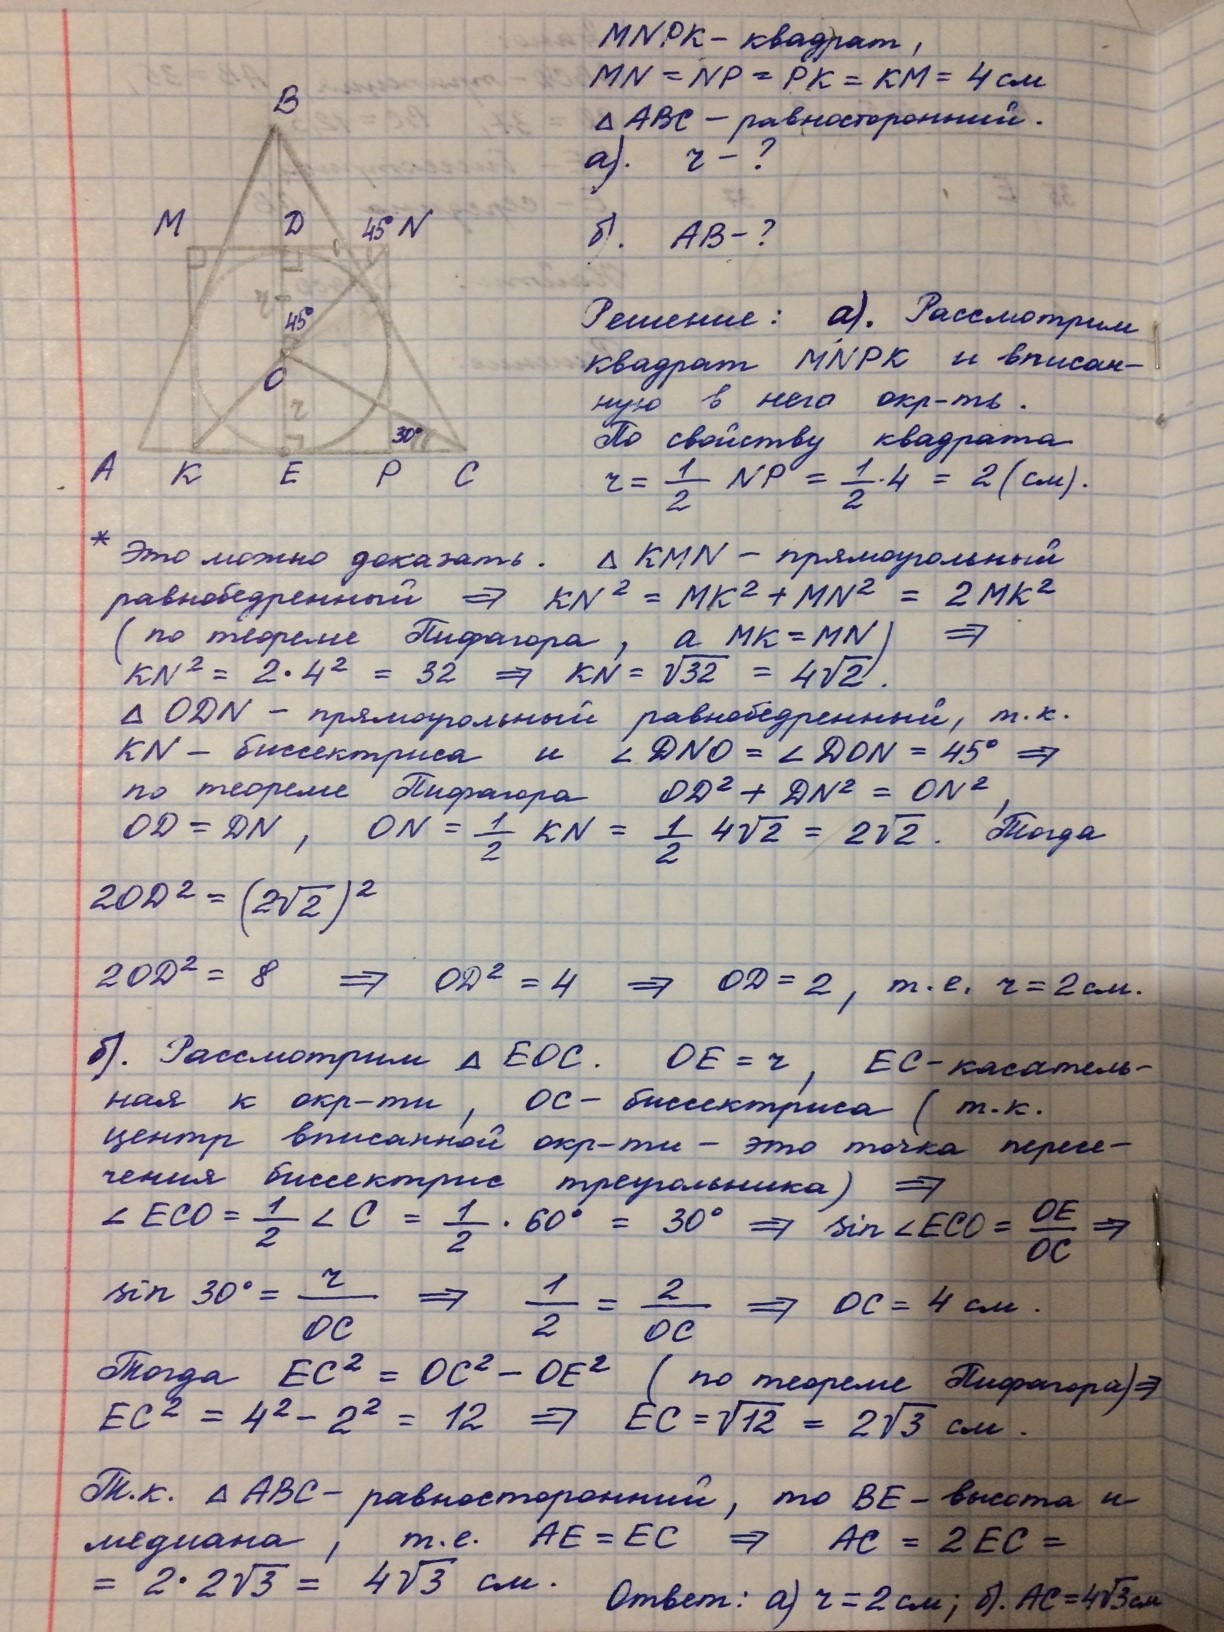 MNPK - квадрат,
MN = NP = PK = KM = 4 см
△ABC - равносторонний.
а). r - ?
б). AB - ?
B
M D 45° N
r
45°
O
r
30°
A K E P C
Решение: а). Рассмотрим
квадрат MNPK и вписан-
ную в него окр-ть.
По свойству квадрата
r = 1/2 NP = 1/2 · 4 = 2 (см).
* Это можно доказать. △KMN - прямоугольный
равнобедренный ⇒ KN² = MK² + MN² = 2MK²
(по теореме Пифагора, а MK = MN) ⇒
KN² = 2·4² = 32 ⇒ KN = √32 = 4√2.
△ODN - прямоугольный равнобедренный, т.к.
KN - биссектриса и ∠DNO = ∠DON = 45° ⇒
по теореме Пифагора OD² + DN² = ON²,
OD = DN, ON = 1/2 KN = 1/2 4√2 = 2√2. Тогда
2OD² = (2√2)²
2OD² = 8 ⇒ OD² = 4 ⇒ OD = 2, т.е. r = 2 см.
б). Рассмотрим △EOC. OE = r, EC - касатель-
ная к окр-ти, OC - биссектриса (т.к.
центр вписанной окр-ти - это точка пересе-
чения биссектрис треугольника) ⇒
∠ECO = 1/2 ∠C = 1/2 · 60° = 30° ⇒ sin∠ECO = OE/OC ⇒
sin 30° = r/OC ⇒ 1/2 = 2/OC ⇒ OC = 4 см.
Тогда EC² = OC² - OE² (по теореме Пифагора) ⇒
EC² = 4² - 2² = 12 ⇒ EC = √12 = 2√3 см.
Т.к. △ABC - равносторонний, то BE - высота и
медиана, т.е. AE = EC ⇒ AC = 2EC =
= 2·2√3 = 4√3 см.
Ответ: а) r = 2 см; б). AC = 4√3 см